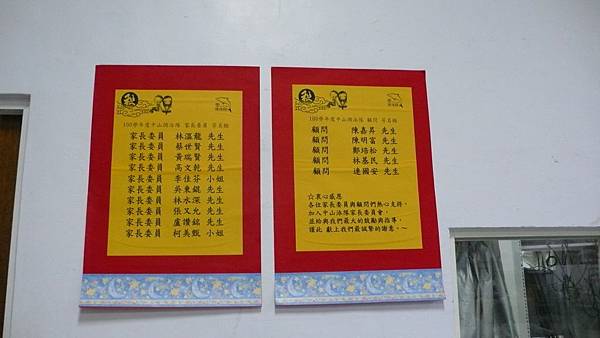 100學年度中山游泳隊 家長委員 芳名錄
家長委員 林溫龍 先生
家長委員 蔡世賢 先生
家長委員 黃瑞賢 先生
家長委員 高文乾 先生
家長委員 李佳芬 小姐
家長委員 吳東錕 先生
家長委員 林水深 先生
家長委員 張又允 先生
家長委員 盧讚銘 先生
家長委員 柯美甄 小姐
100學年度中山游泳隊 顧問 芳名錄
顧問 陳嘉昇 先生
顧問 陳明富 先生
顧問 鄭培松 先生
顧問 林基民 先生
顧問 連國安 先生
☆衷心感恩
各位家長委員與顧問們熱心支持,
加入中山泳隊家長委員會,
並給與我們最大的鼓勵與指導,
謹此 獻上我們最誠摯的謝意。~